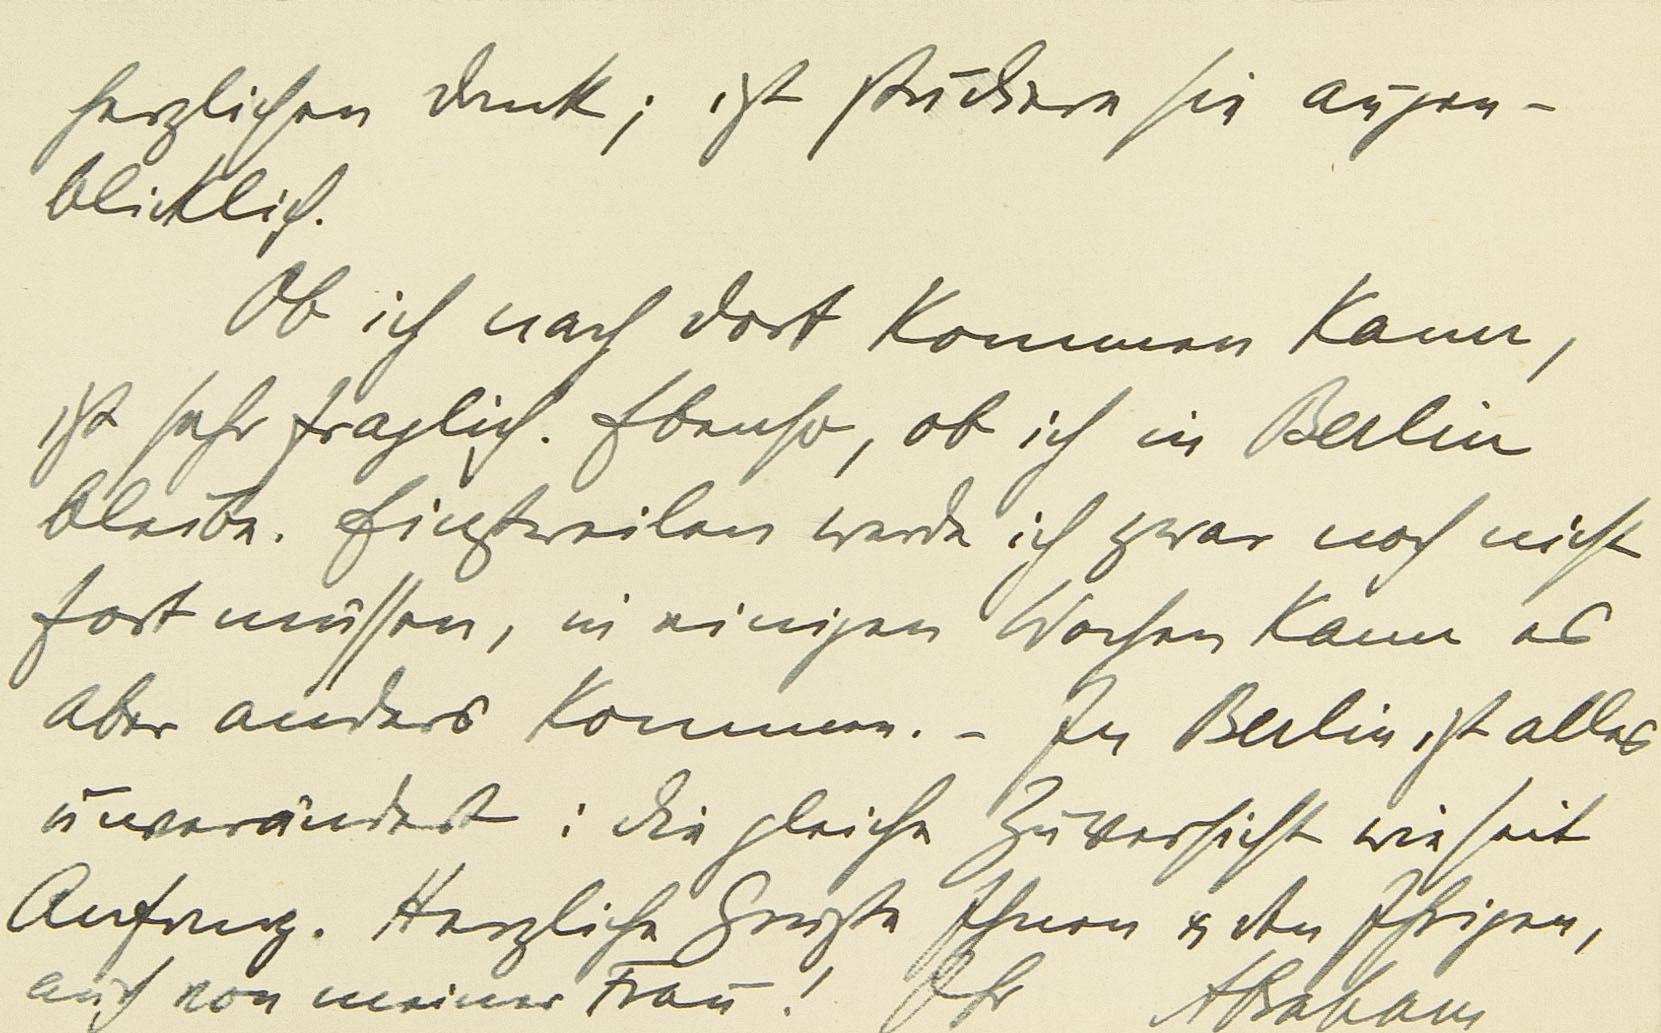 herzlichen Dank; ich studiere sie augen-
blicklich.
Ob ich nach dort kommen kann,
ist sehr fraglich. Ebenso, ob ich in Berlin
bleibe. Einstweilen werde ich zwar noch nicht
fort müssen, in einigen Wochen kann es
aber anders kommen. - In Berlin ist alles
unverändert: die gleiche Zuversicht wie seit
Anfang. Herzliche Grüße Ihnen & den Ihrigen,
auch von meiner Frau! Ihr Abraham